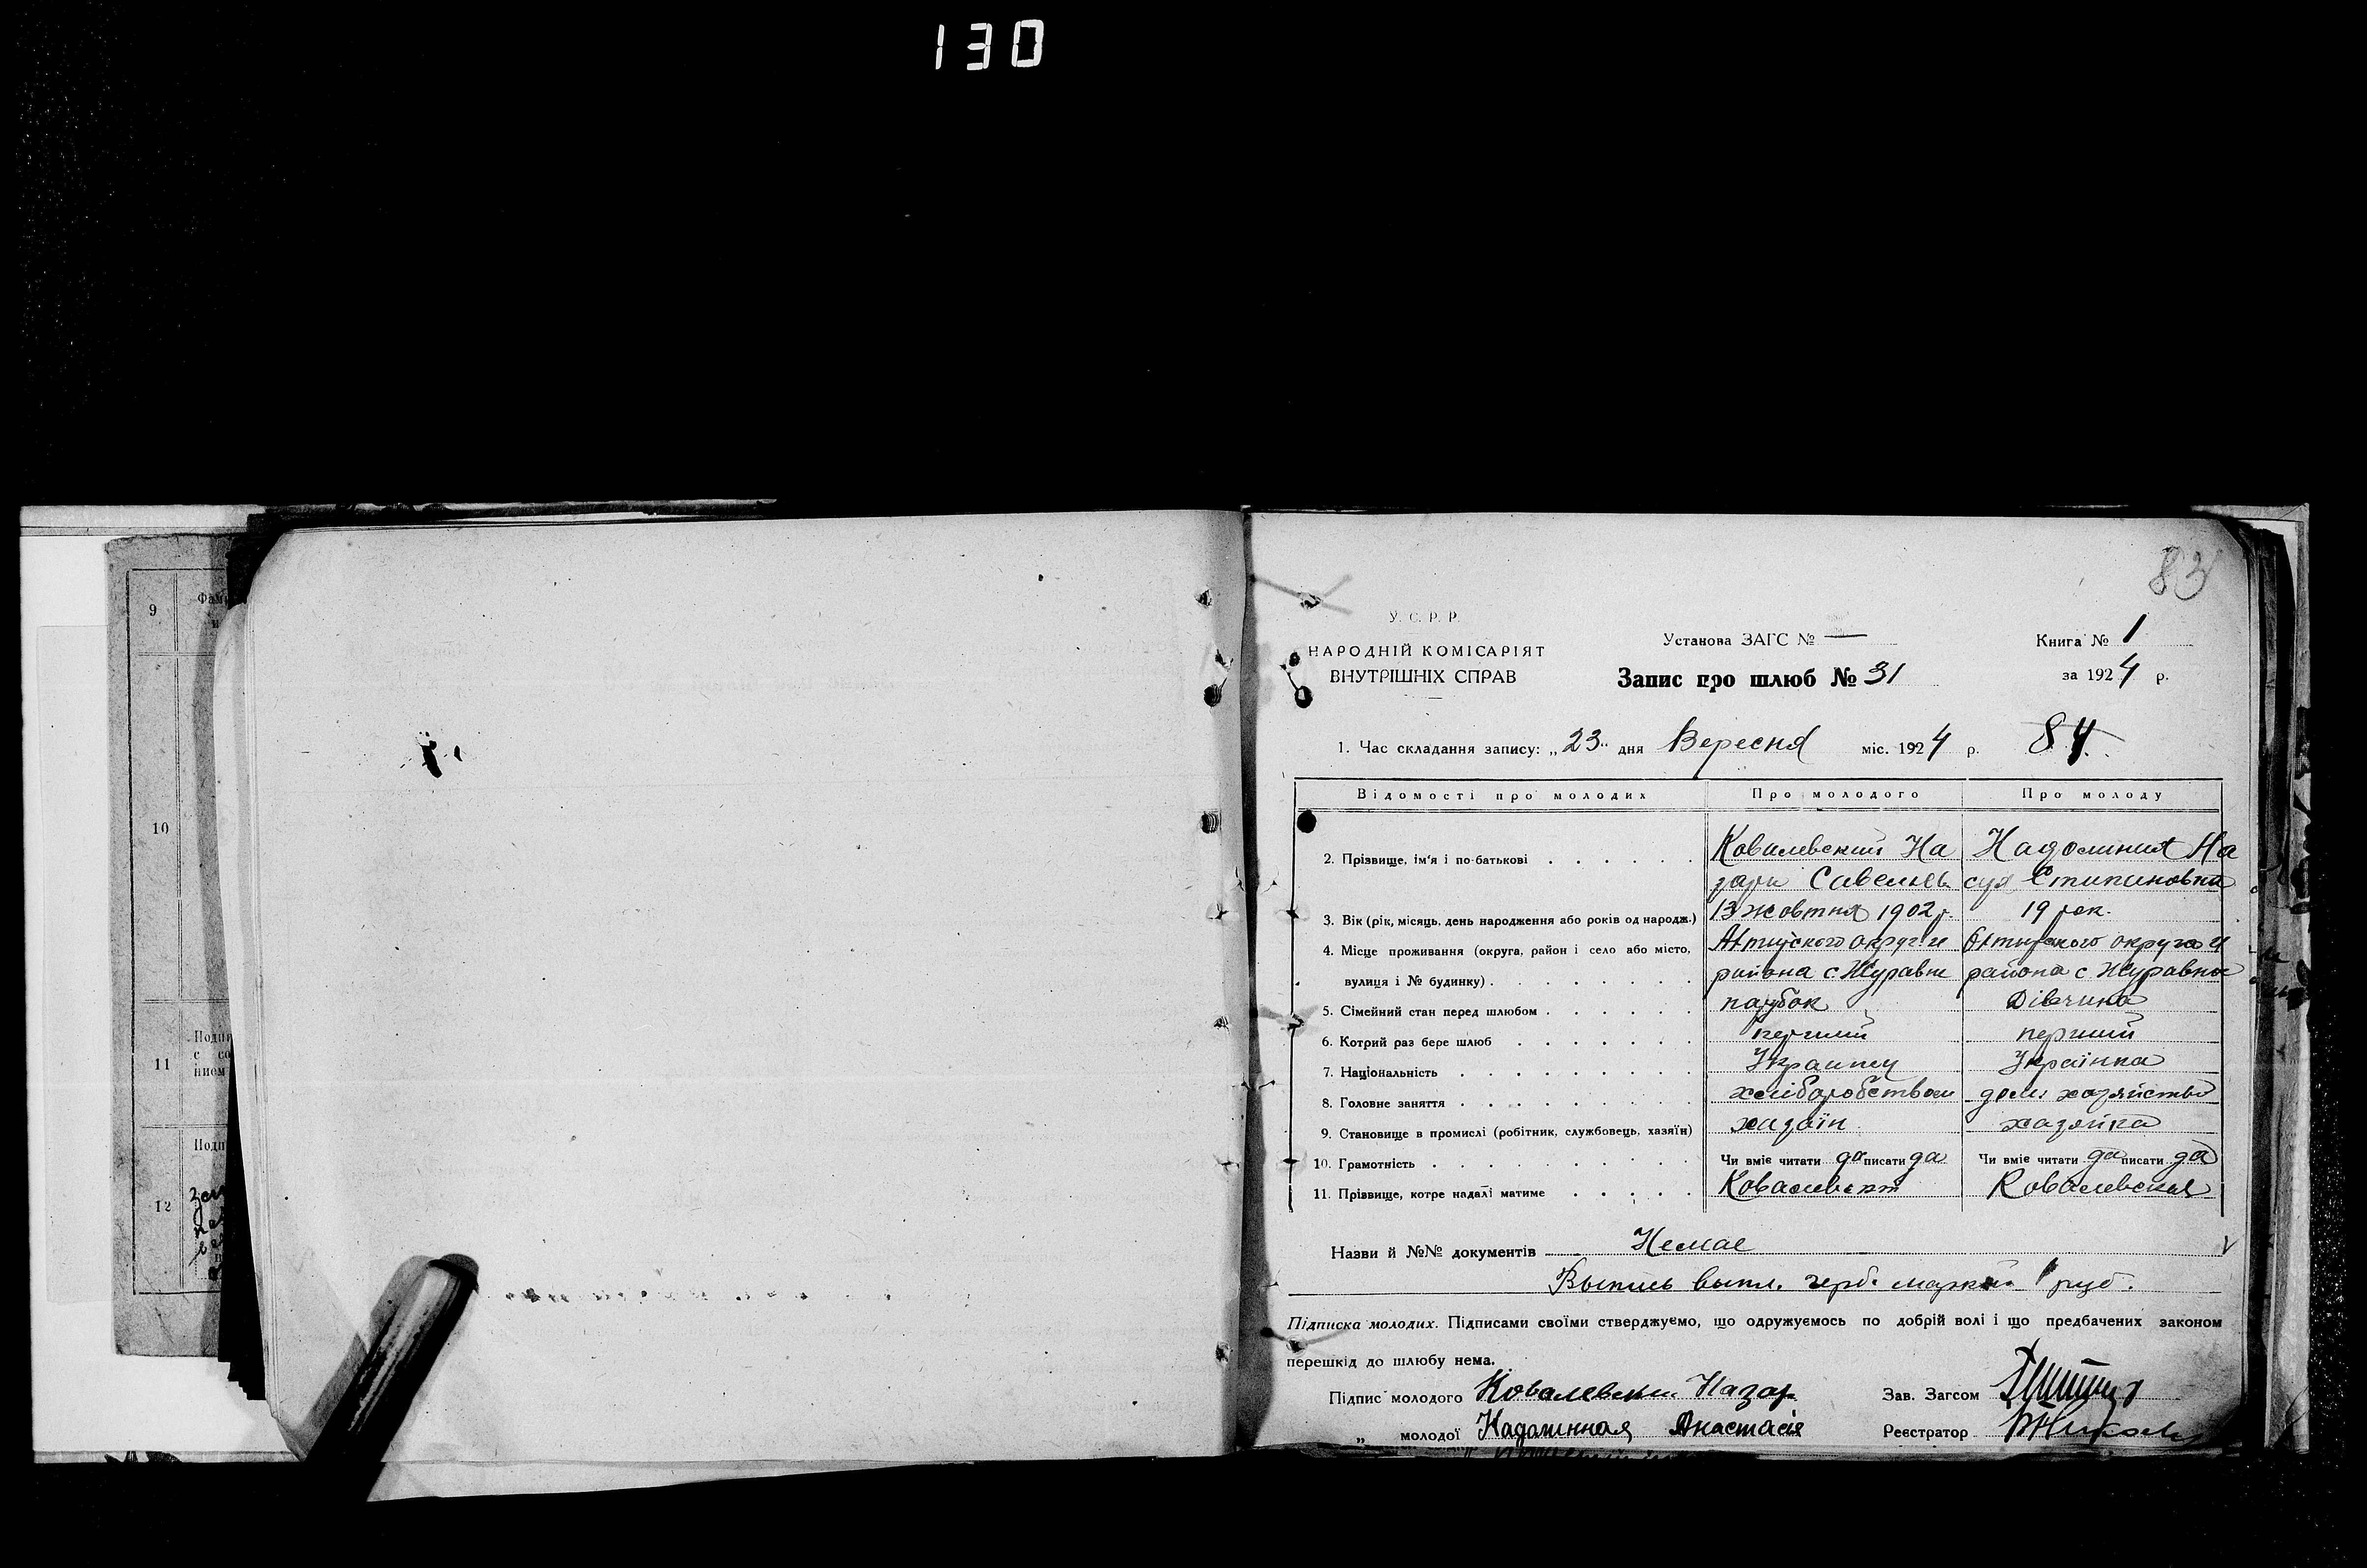 130
83
У. С. Р. Р.
НАРОДНІЙ КОМІСАРІЯТ
ВНУТРІШНІХ СПРАВ
Установа ЗАГС № —
Запис про шлюб № 31
Книга № 1
за 1924 р.
1. Час складання запису: „23" дня Вересня міс. 1924 р. 84
Відомості про молодих Про молодого Про молоду
2. Прізвище, ім'я і по-батькові
Ковалевский На Надолиния На
зари Савельев стя Стипиновна
3. Вік (рік, місяць, день народження або років од народж.) 13 жовтня 1902 р. 19 рок.
4. Місце проживання (округа, район і село або місто, округи округа
вулиця і № будинку) района с. Журавне района с. Журавне
5. Сімейний стан перед шлюбом парубок Дівчина
6. Котрий раз бере шлюб перший перший
7. Національність Украинец Українка
8. Головне заняття хліборобством дом. хазяйство
9. Становище в промислі (робітник, службовець, хазяїн) хазаїн хазяйка
10. Грамотність Чи вміє читати да писати да Чи вміє читати да писати да
11. Прізвище, котре надалі матиме Ковалевский Ковалевская
Назви й №№ документів Немае
Выпись выпл. герб. марки 1 руб.
Підписка молодих. Підписами своїми стверджуємо, що одружуємось по добрій волі і що предбачених законом
перешкід до шлюбу нема.
Підпис молодого Ковалевски Назар Зав. Загсом
„ молодої Надолинная Анастасія Реєстратор
9
10
11
12